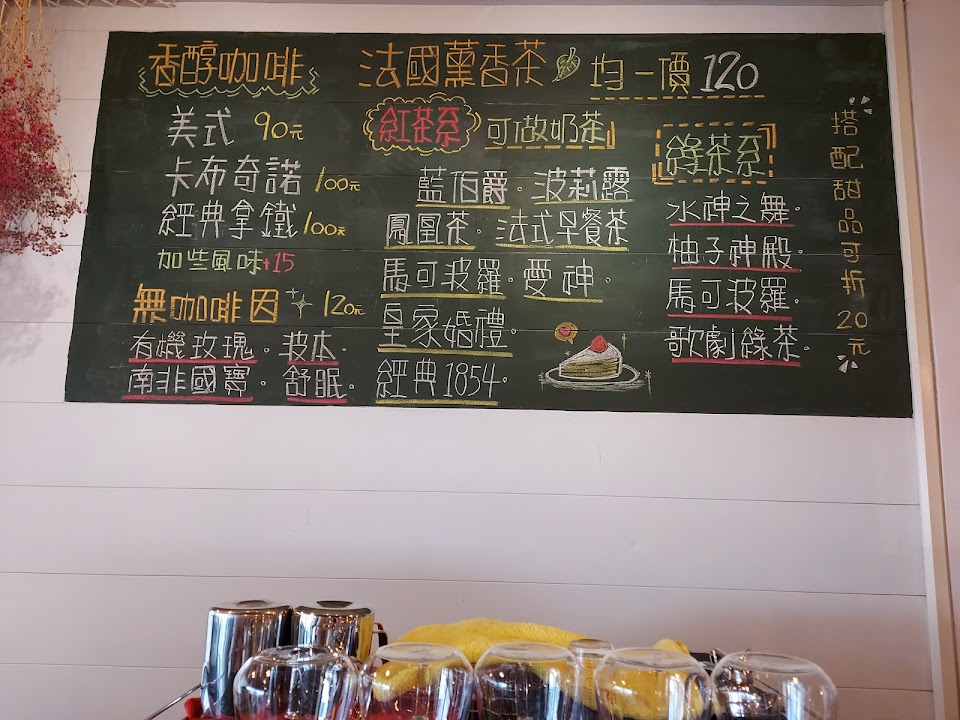 香醇咖啡
美式 90元
卡布奇諾 100元
經典拿鐵 100元
加些風味+15
無咖啡因 120元
有機玫瑰。波本。
南非國寶。舒眠。
法國薰香茶 均一價 120
紅茶系 可做奶茶
藍伯爵。波莉露
鳳凰茶。法式早餐茶
馬可波羅。愛神。
皇家婚禮。
經典1854。
綠茶系
水神之舞。
柚子神殿。
馬可波羅。
歌劇綠茶。
搭配甜品可折20元